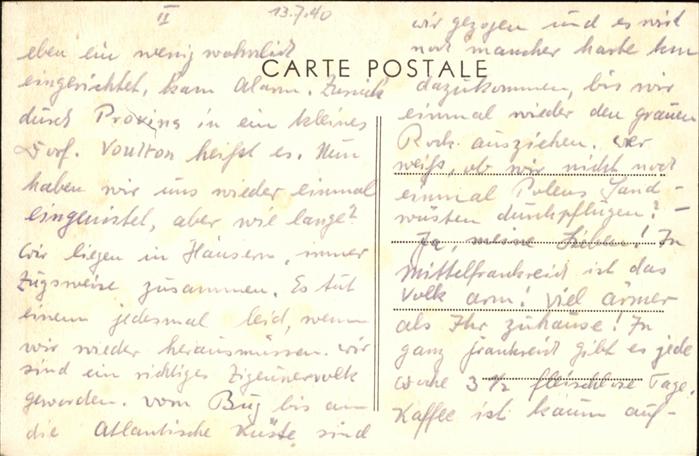 II
13.7.40
CARTE POSTALE
eben ein wenig wohnlich
eingerichtet, kam Alarm. Zurück
durch Provins in ein kleines
Dorf. Voulton heißt es. Nun
haben wir uns wieder einmal
eingenistet, aber wie lange?
Wir liegen in Häusern, immer
Zugsweise zusammen. Es tut
einem jedesmal leid, wenn
wir wieder herausmüssen. Wir
sind ein richtiges Zigeunervolk
geworden. Vom Bug bis an
die Atlantische Küste sind
wir gezogen und es wird
noch mancher harte km
dazukommen, bis wir
einmal wieder den grauen
Rock ausziehen. Wer
weiß, ob wir nicht noch
einmal Polens Sand-
wüsten durchpflügen? -
Ja, meine Lieben! In
Mittelfrankreich ist das
Volk arm! Viel ärmer
als Ihr zuhause! In
ganz Frankreich gibt es jede
Woche 3 fleischlose Tage.
Kaffee ist kaum auf-